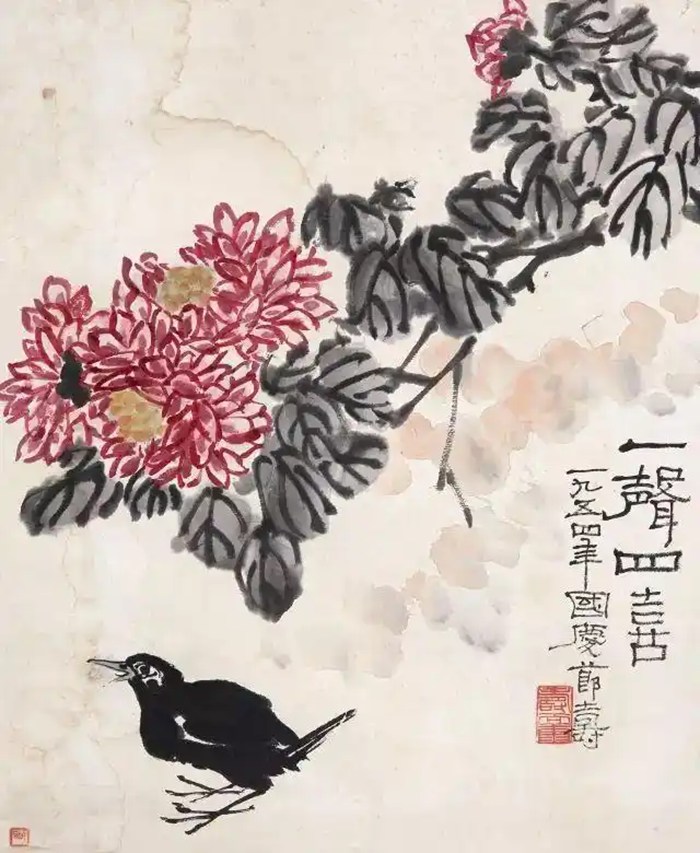 一聲四喜
一九五四年國慶節壽